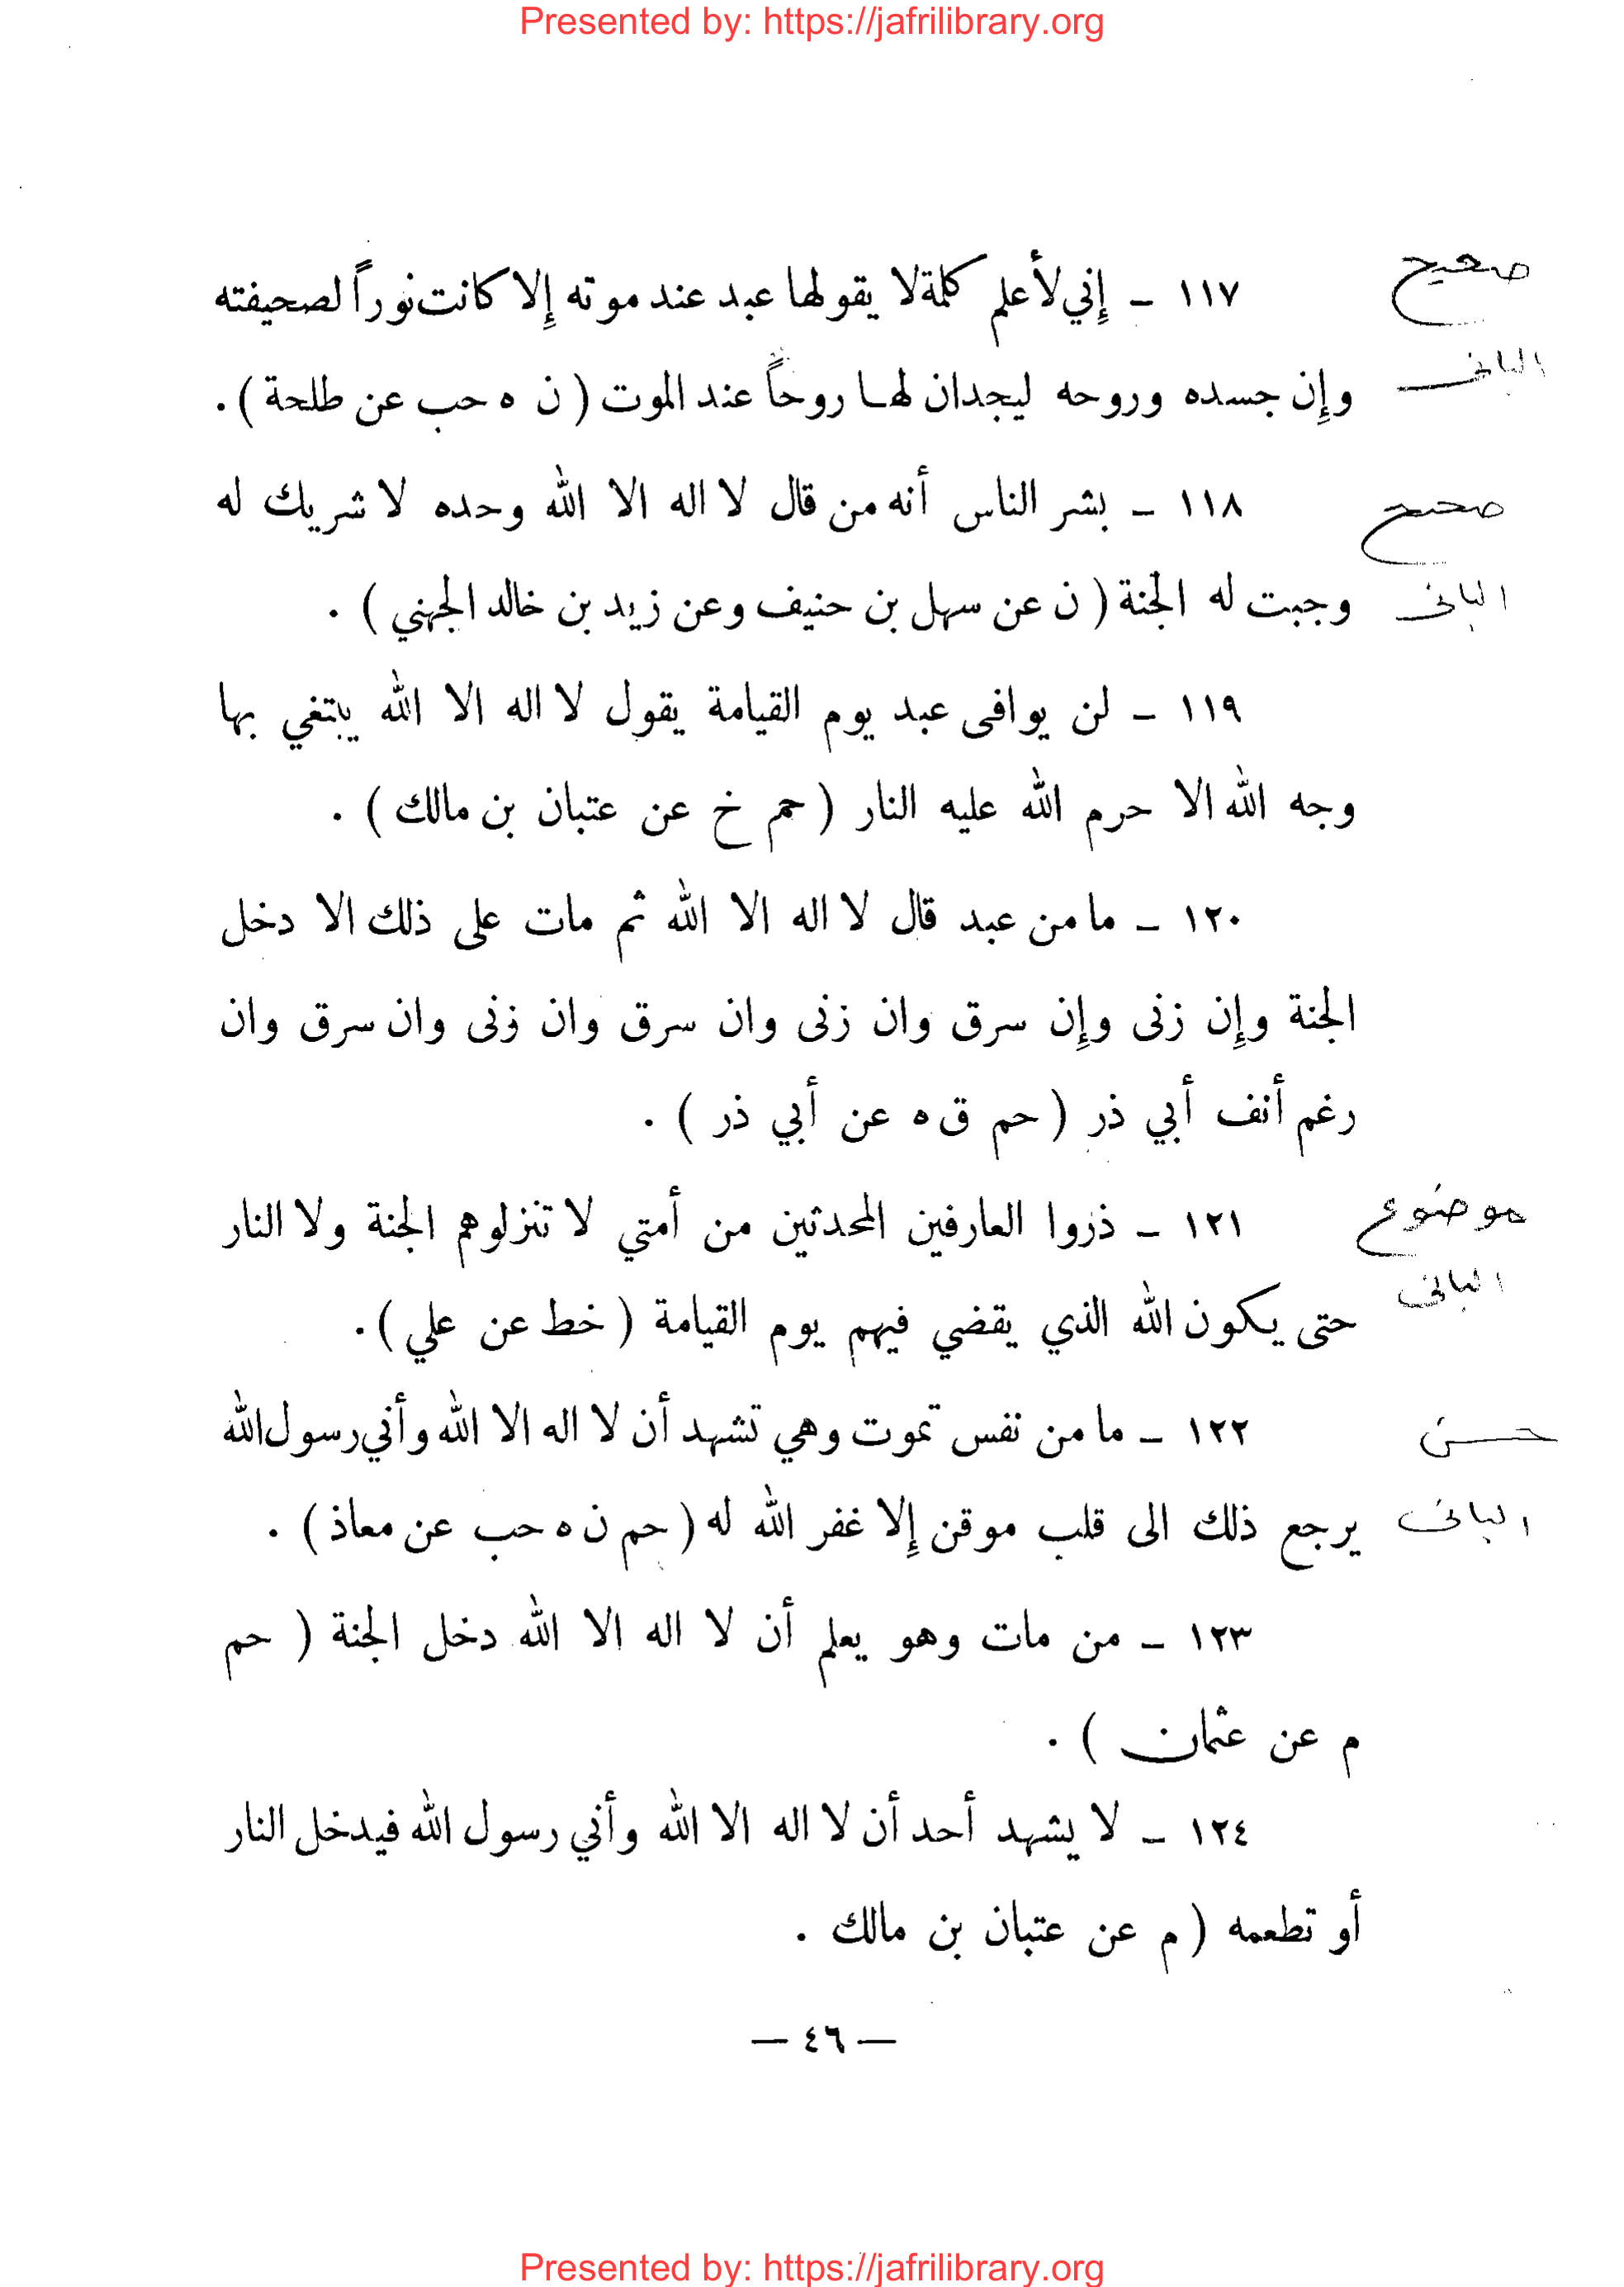 Presented by: https://jafrilibrary.org
صحيح
١١٧ ـ إني لأعلم كلمة لا يقولها عبد عند موته إلا كانت نوراً لصحيفته
البانى
وإن جسده وروحه ليجدان لهـا روحاً عند الموت ( ن ه حب عن طلحة ) .
صحيح
١١٨ ـ بشر الناس أنه من قال لا اله الا الله وحده لا شريك له
البانى
وجبت له الجنة ( ن عن سهل بن حنيف وعن زيد بن خالد الجهني ) .
١١٩ ـ لن يوافى عبد يوم القيامة يقول لا اله الا الله يبتغي بها
وجه الله الا حرم الله عليه النار ( حم خ عن عتبان بن مالك ) .
١٢٠ ـ ما من عبد قال لا اله الا الله ثم مات على ذلك الا دخل
الجنة وإن زنى وإن سرق وان زنى وان سرق وان زنى وان سرق وان
رغم أنف أبي ذر ( حم ق ه عن أبي ذر ) .
موضوع
١٢١ ـ ذروا العارفين المحدثين من أمتي لا تنزلوهم الجنة ولا النار
البانى
حتى يكون الله الذي يقضي فيهم يوم القيامة ( خط عن علي ) .
حسن
١٢٢ ـ ما من نفس تموت وهي تشهد أن لا اله الا الله وأني رسول الله
البانى
يرجع ذلك الى قلب موقن إلا غفر الله له ( حم ن ه حب عن معاذ ) .
١٢٣ ـ من مات وهو يعلم أن لا اله الا الله دخل الجنة ( حم
م عن عثمان ) .
١٢٤ ـ لا يشهد أحد أن لا اله الا الله وأني رسول الله فيدخل النار
أو تطعمه ( م عن عتبان بن مالك .
— ٤٦ —
Presented by: https://jafrilibrary.org